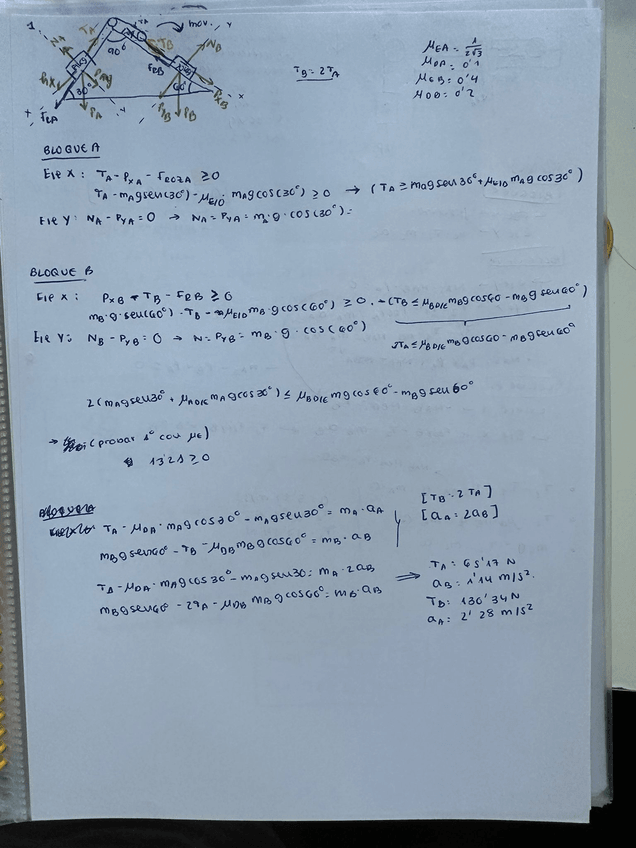 mov.
N_A T_A T_B N_B
90°
30° 60°
P_A P_B P_XB
F_RA F_RB
T_B = 2T_A
μ_EA = 1/(2√3)
μ_DA = 0'1
μ_EB = 0'4
μ_DB = 0'2
BLOQUE A
EJE X: T_A - P_XA - F_ROZA ≥ 0
T_A - m_A g sen(30°) - μ_E/D · m_A g cos(30°) ≥ 0 → (T_A ≥ m_A g sen30° + μ_E/D m_A g cos30°)
EJE Y: N_A - P_YA = 0 → N_A = P_YA = m_A · g · cos(30°) =
BLOQUE B
EJE X: P_XB - T_B - F_RB ≥ 0
m_B · g · sen(60°) - T_B - μ_E/D m_B · g cos(60°) ≥ 0 → (T_B ≤ μ_BD/E m_B g cos60 - m_B g sen60°)
EJE Y: N_B - P_YB = 0 → N = P_YB = m_B · g · cos(60°)
2T_A ≤ μ_BD/E m_B g cos60 - m_B g sen60°
2(m_A g sen30° + μ_AD/E m_A g cos30°) ≤ μ_BD/E m g cos60° - m_B g sen60°
→ (probar 1° con μ_E)
13'21 ≥ 0
T_A - μ_DA · m_A g cos30° - m_A g sen30° = m_A · a_A
[T_B = 2T_A]
m_B g sen60° - T_B - μ_DB m_B g cos60° = m_B · a_B
[a_A = 2a_B]
T_A - μ_DA · m_A g cos30° - m_A g sen30 = m_A · 2a_B
m_B g sen60 - 2T_A - μ_DB m_B g cos60° = m_B · a_B
⟹ T_A = 65'17 N
a_B = 1'14 m/s².
T_B = 130'34 N
a_A = 2'28 m/s²